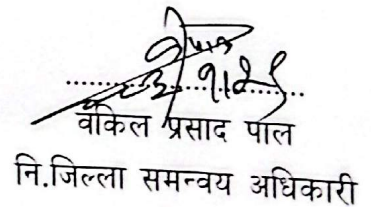 वकिल प्रसाद पाल
नि.जिल्ला समन्वय अधिकारी